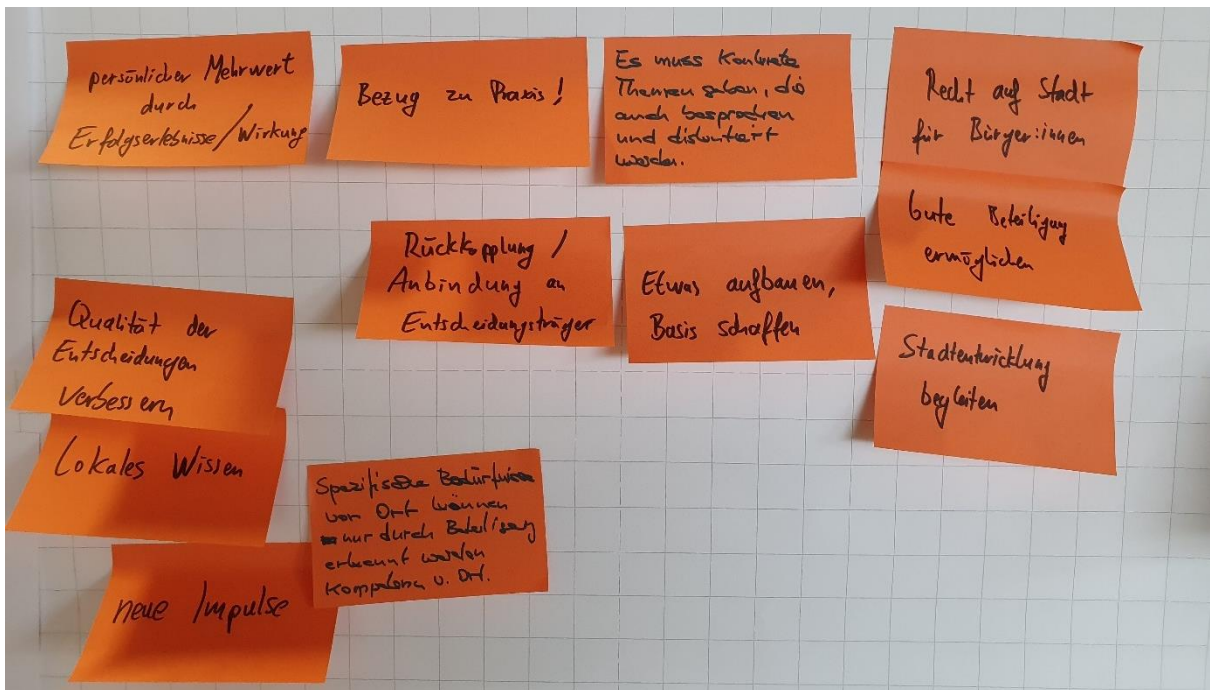 persönlicher Mehrwert
durch
Erfolgserlebnisse/Wirkung
Bezug zu Praxis!
Es muss Konkrete
Themen geben, die
auch besprochen
und diskutiert
werden.
Recht auf Stadt
für Bürger:innen
Gute Beteiligung
ermöglichen
Rückkopplung /
Anbindung an
Entscheidungsträger
Etwas aufbauen,
Basis schaffen
Stadtentwicklung
begleiten
Qualität der
Entscheidungen
verbessern
Lokales Wissen
Spezifische Bedürfnisse
vor Ort können
nur durch Beteiligung
erkannt werden
Kompetenz v. Ort.
neue Impulse